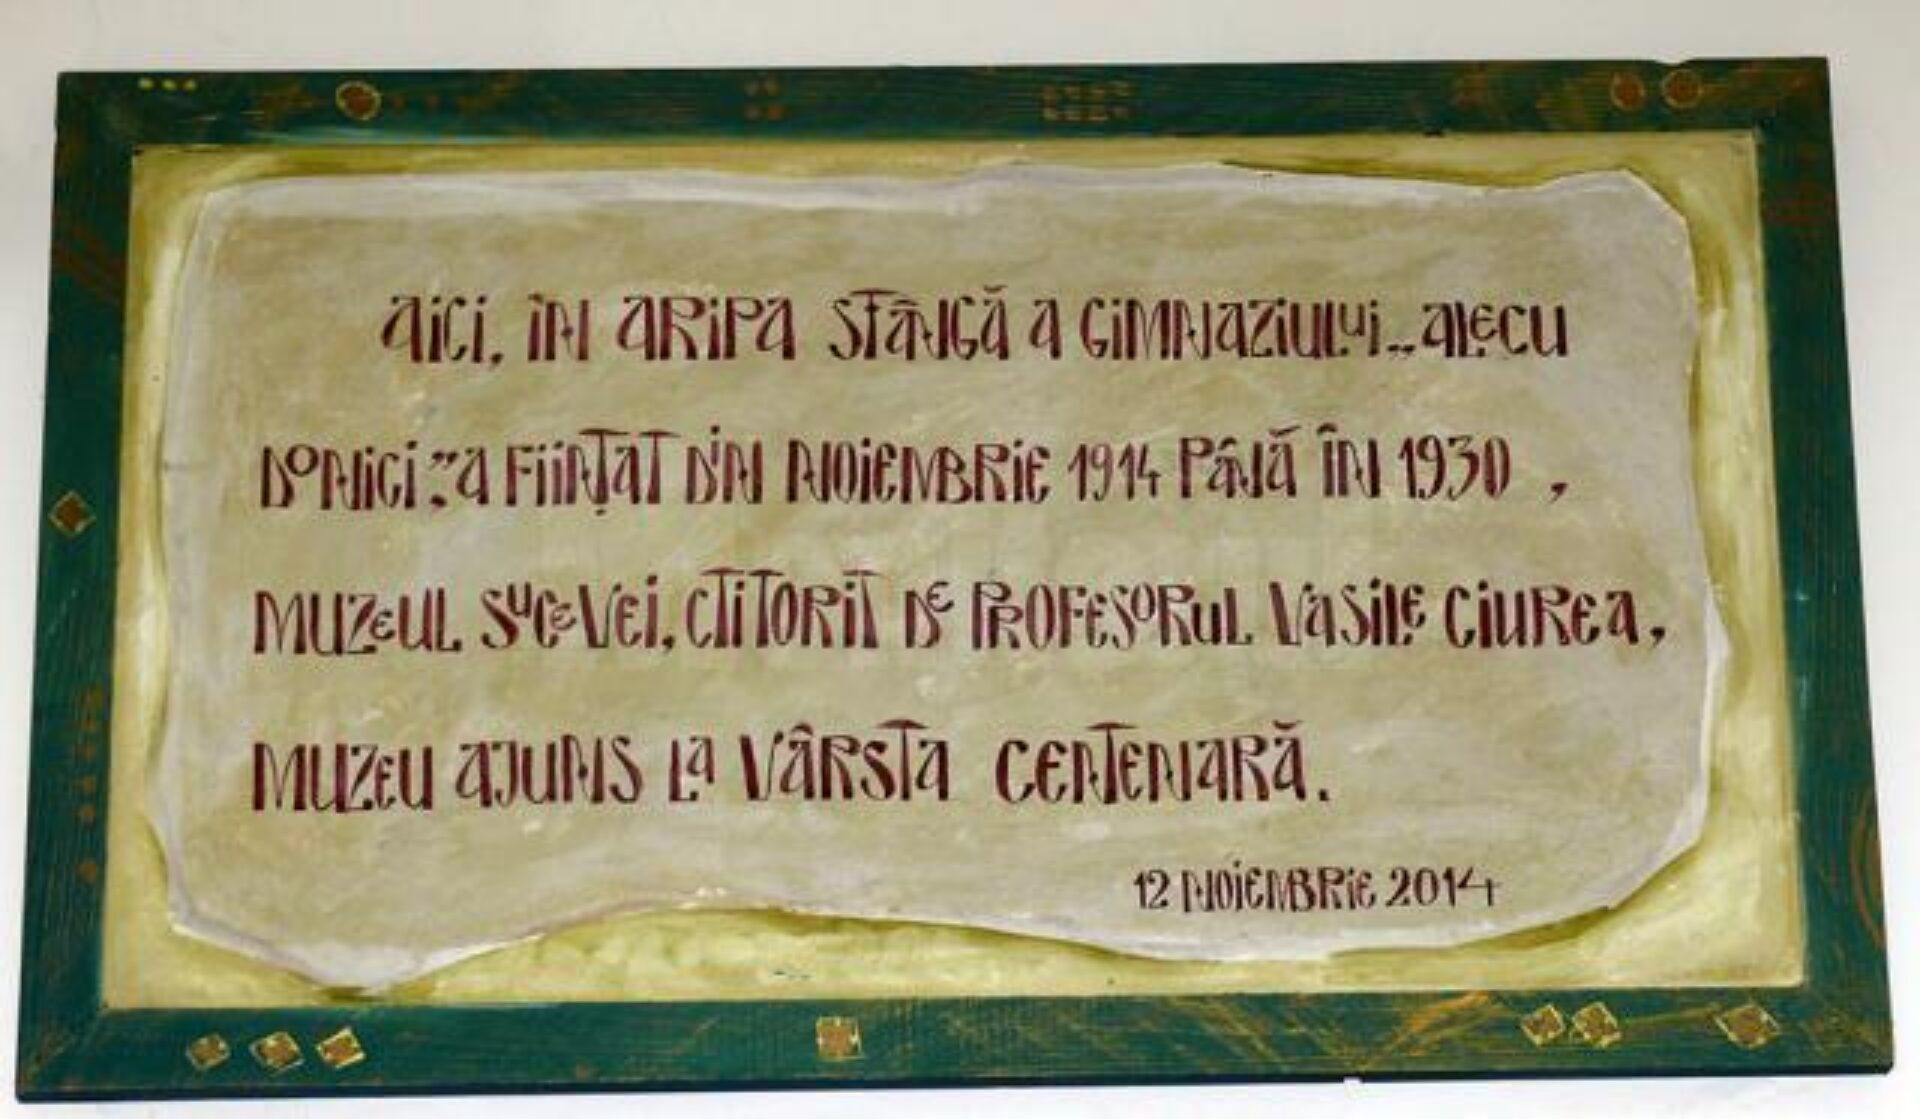 AICI, ÎN ARIPA STÂNGĂ A GIMNAZIULUI „ALECU
DONICI”, A FIINȚAT DIN NOIEMBRIE 1914 PÂNĂ ÎN 1930,
MUZEUL SUCEVEI, CTITORIT DE PROFESORUL VASILE CIUREA,
MUZEU AJUNS LA VÂRSTA CENTENARĂ.
12 NOIEMBRIE 2014